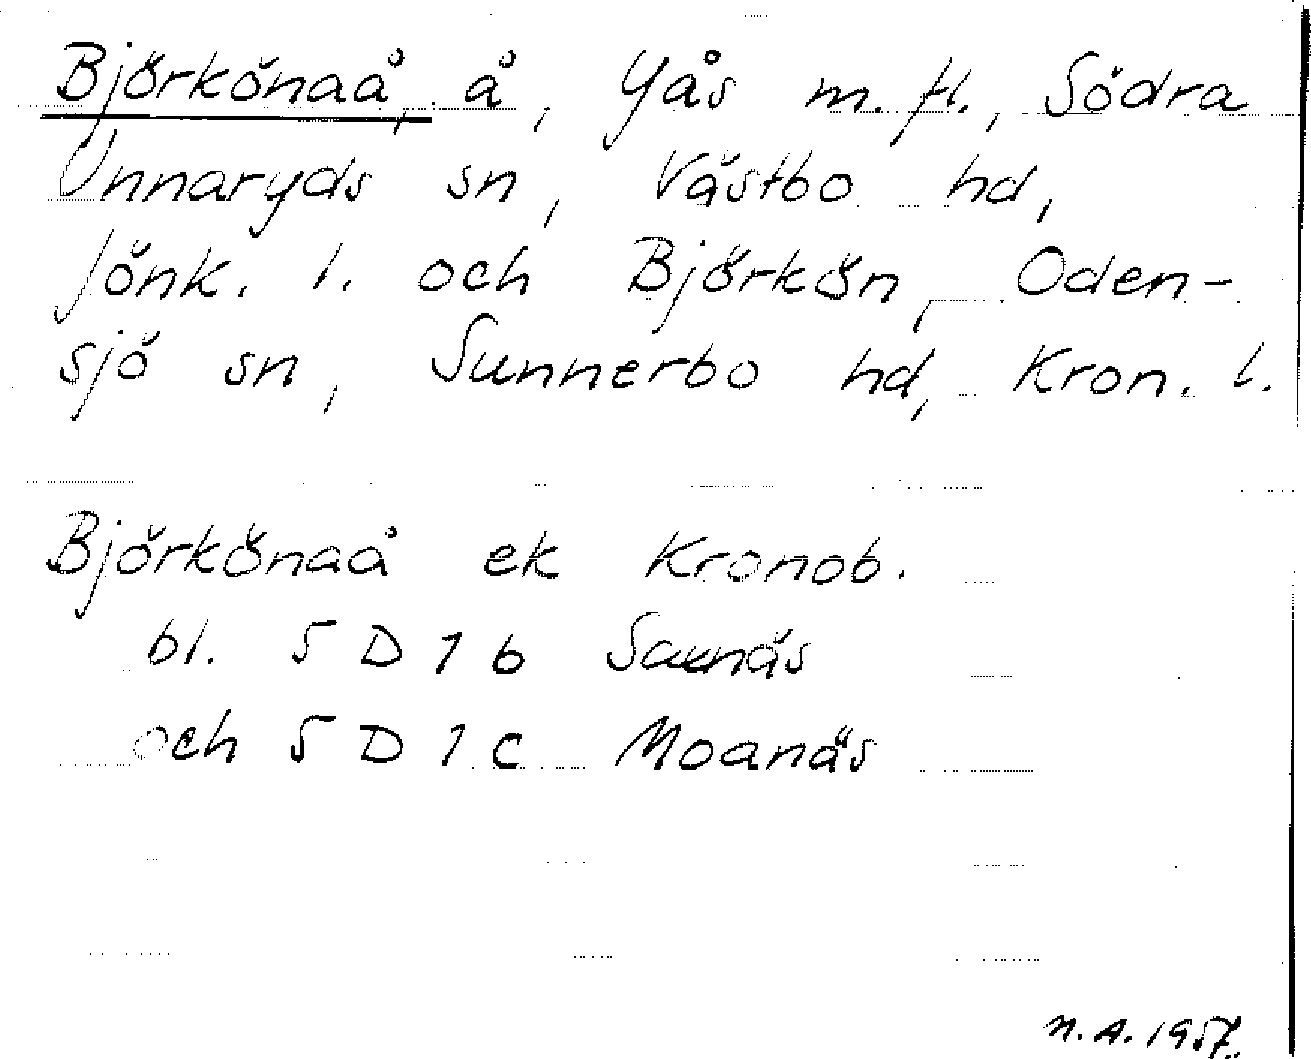 Björkönaå, å, Yås m. fl., Södra
Unnaryds sn, Västbo hd,
Jönk. l. och Björkön, Oden-
sjö sn, Sunnerbo hd, Kron. l.
Björkönaå ek Kronob.
bl. 5 D 1 b
och 5 D 1 c Moanäs
N.A. 1957.